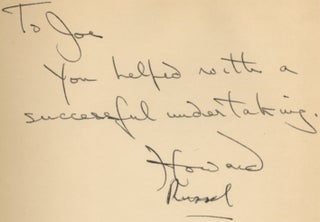 To Joe
You helped with a
successful undertaking.
Howard
Russel